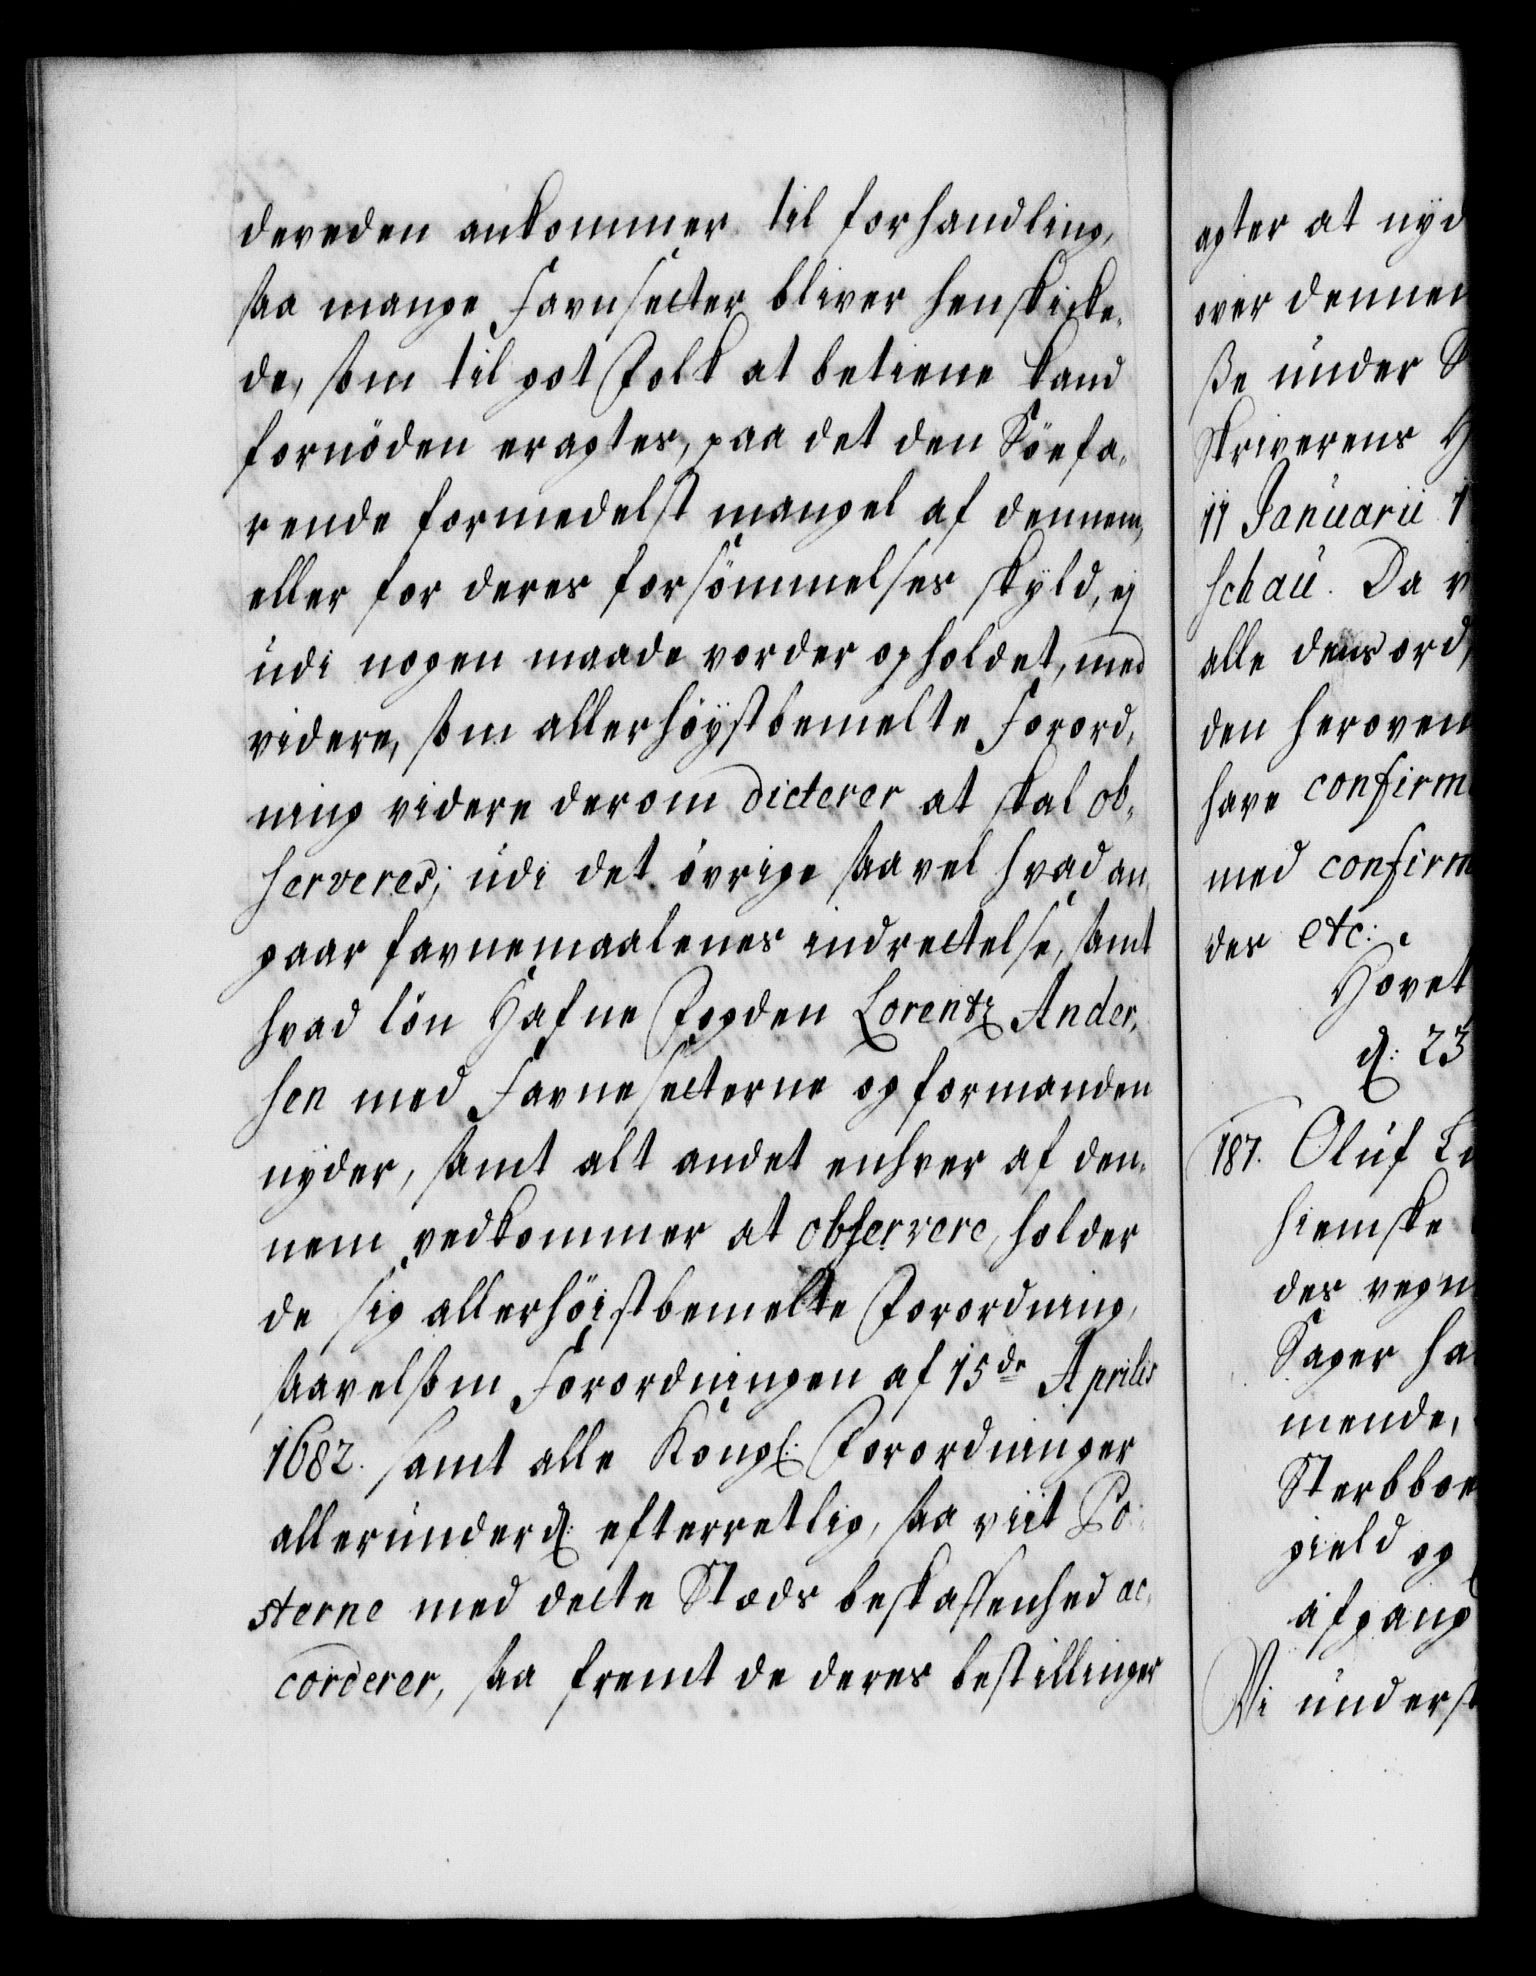 derreden ankommer til forhandling,
saa mange Favnsetter bliver henskicke,
de, som til got Folk at betiene kand
fornöden eragtes, paa det den Söefa,
rende formedelst mangel af dennem,
eller for deres forsömmelses skyld, ej
udi nogen maade vorder opholdet, med
videre, som allerhöystbemelte Forord,
ning videre derom dicterer at skal ob,
serveres; udi det övrige saavel hvad an,
gaar favnemaalenes indrettelse, samt
hvad lön Hafne Fogden Lorentz Ander,
sen med Favnesetterne og formanden
nyder, samt alt andet enhver af den,
nem vedkommer at observere, holder
de sig allerhöistbemelte Forordning,
saavelsom Forordningen af 15de Aprilis
1682. samt alle Kongl: Forordninger
allerunderd: efterretlig, saa viit Po:
sterne med dette Stæds beskaffenhed ac,
corderer, saa fremt de deres bestillinger
agter at nyd
over dennem
ße under
Skriverens H
11 Januarii 1
schau. Da v
alle dens ord
den heroven
have confirm
med confirm
des etc:
Hovet
d: 23
187. Oluf
hiemske
des vegn
Sager ha
mende,
Sterbboe
gield og
afgang
Vi underst